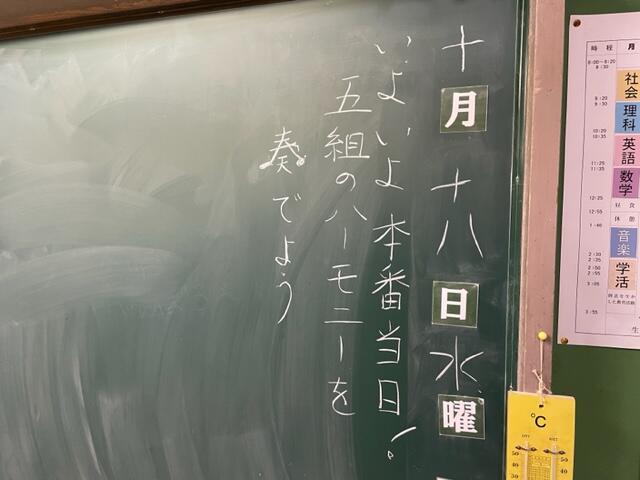 十月十八日水曜
いよいよ本番当日!
五組のハーモニーを
奏でよう
時程 月
8:00〜8:20
8:30
社会
9:20
9:30
理科
10:20
10:35
英語
11:25
11:35
数学
12:25
昼食
12:55
休憩
1:40
音楽
2:30
2:35
2:50
2:55
学活
3:05
3:55
℃
50
40
30
50
40
30